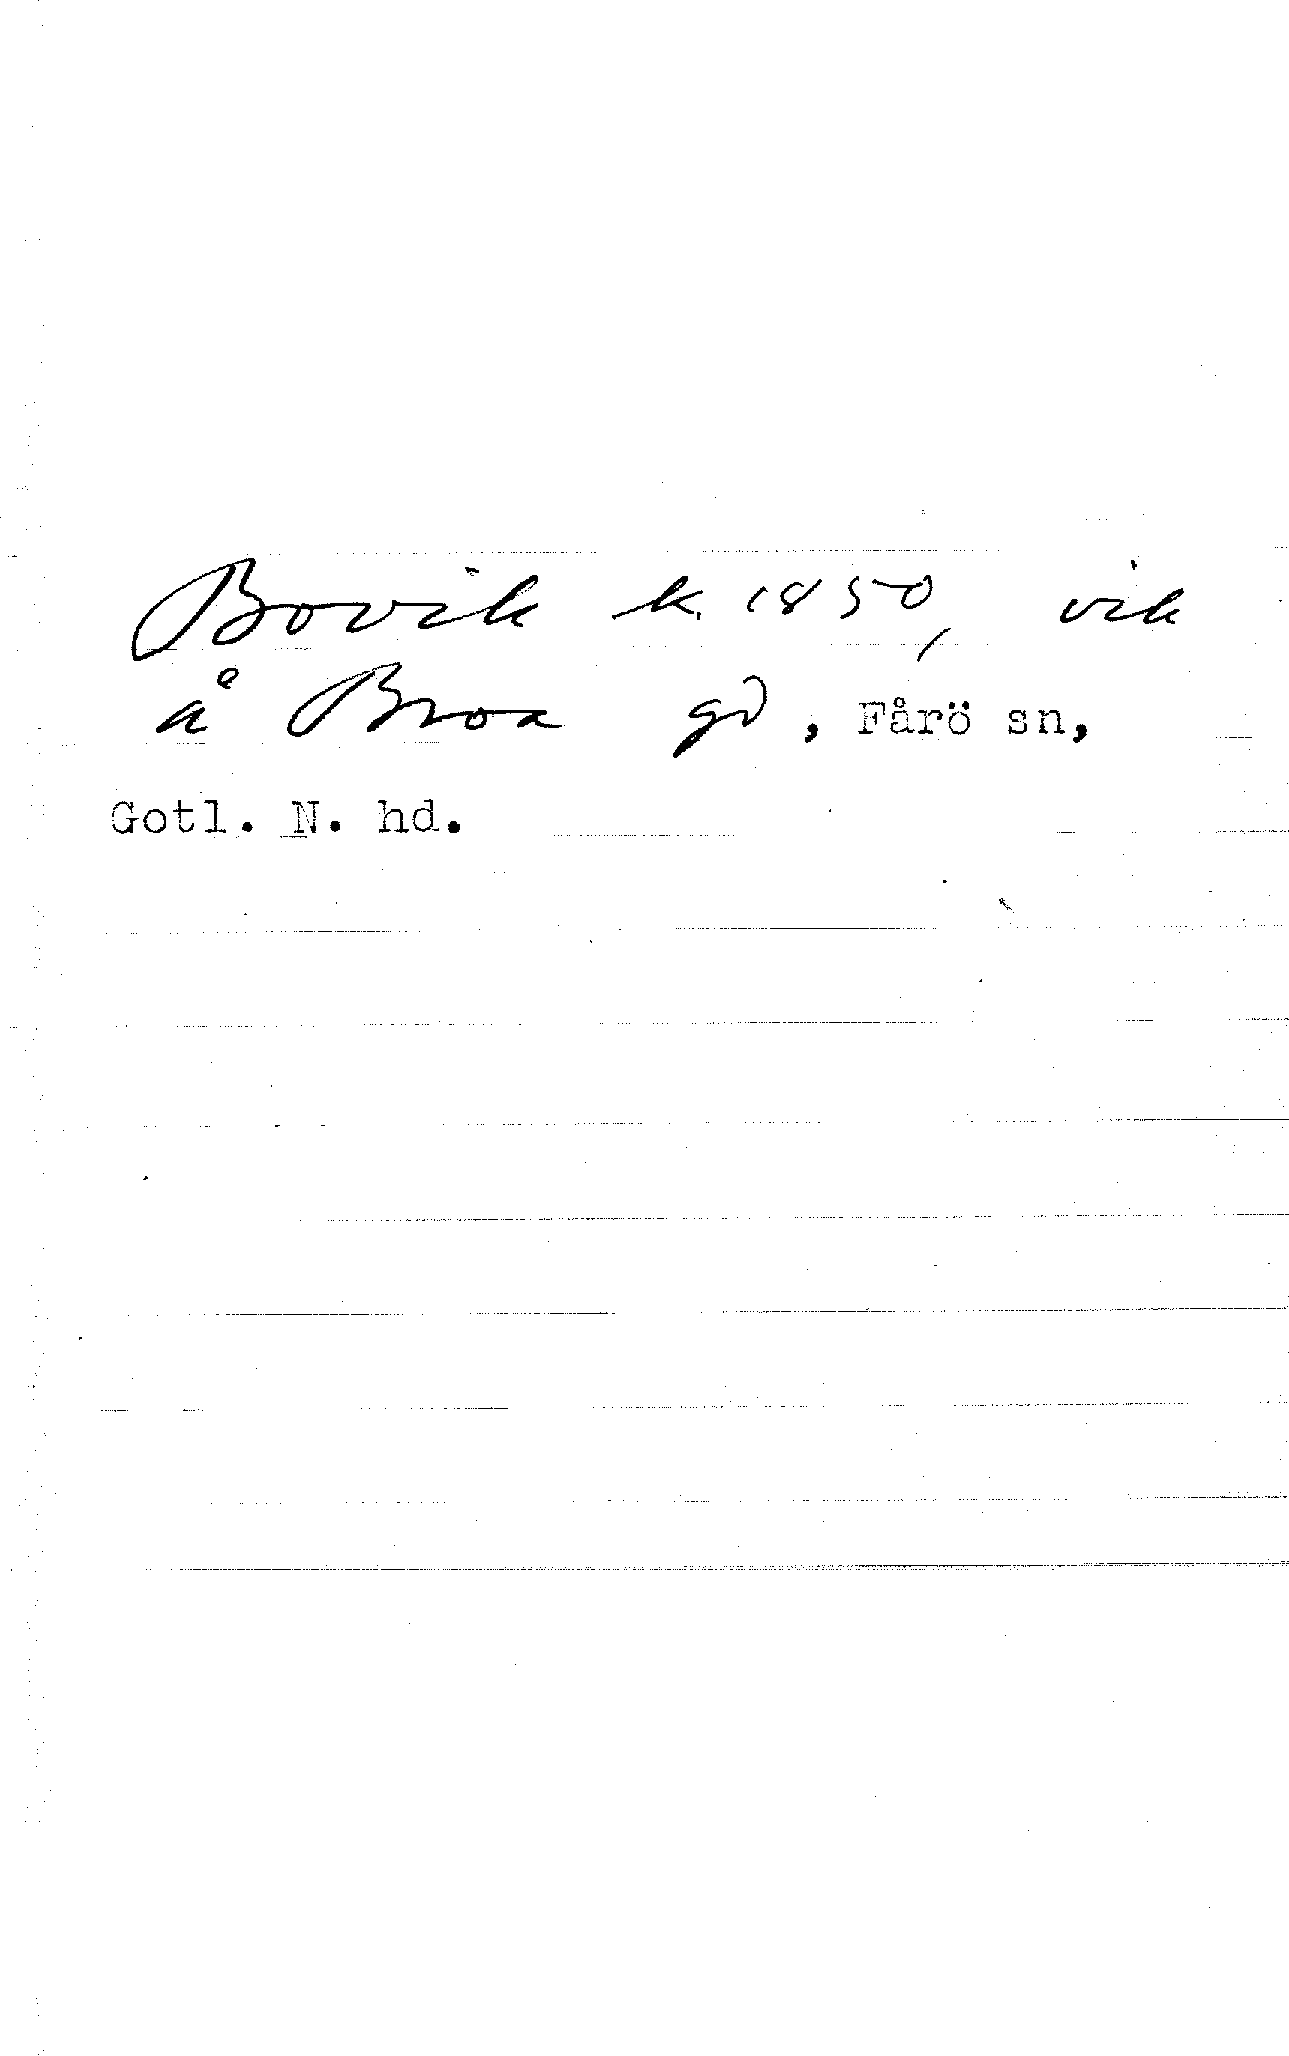 Bovik k. 1850, vik
å Broa gd, Fårö sn,
Gotl. N. hd.